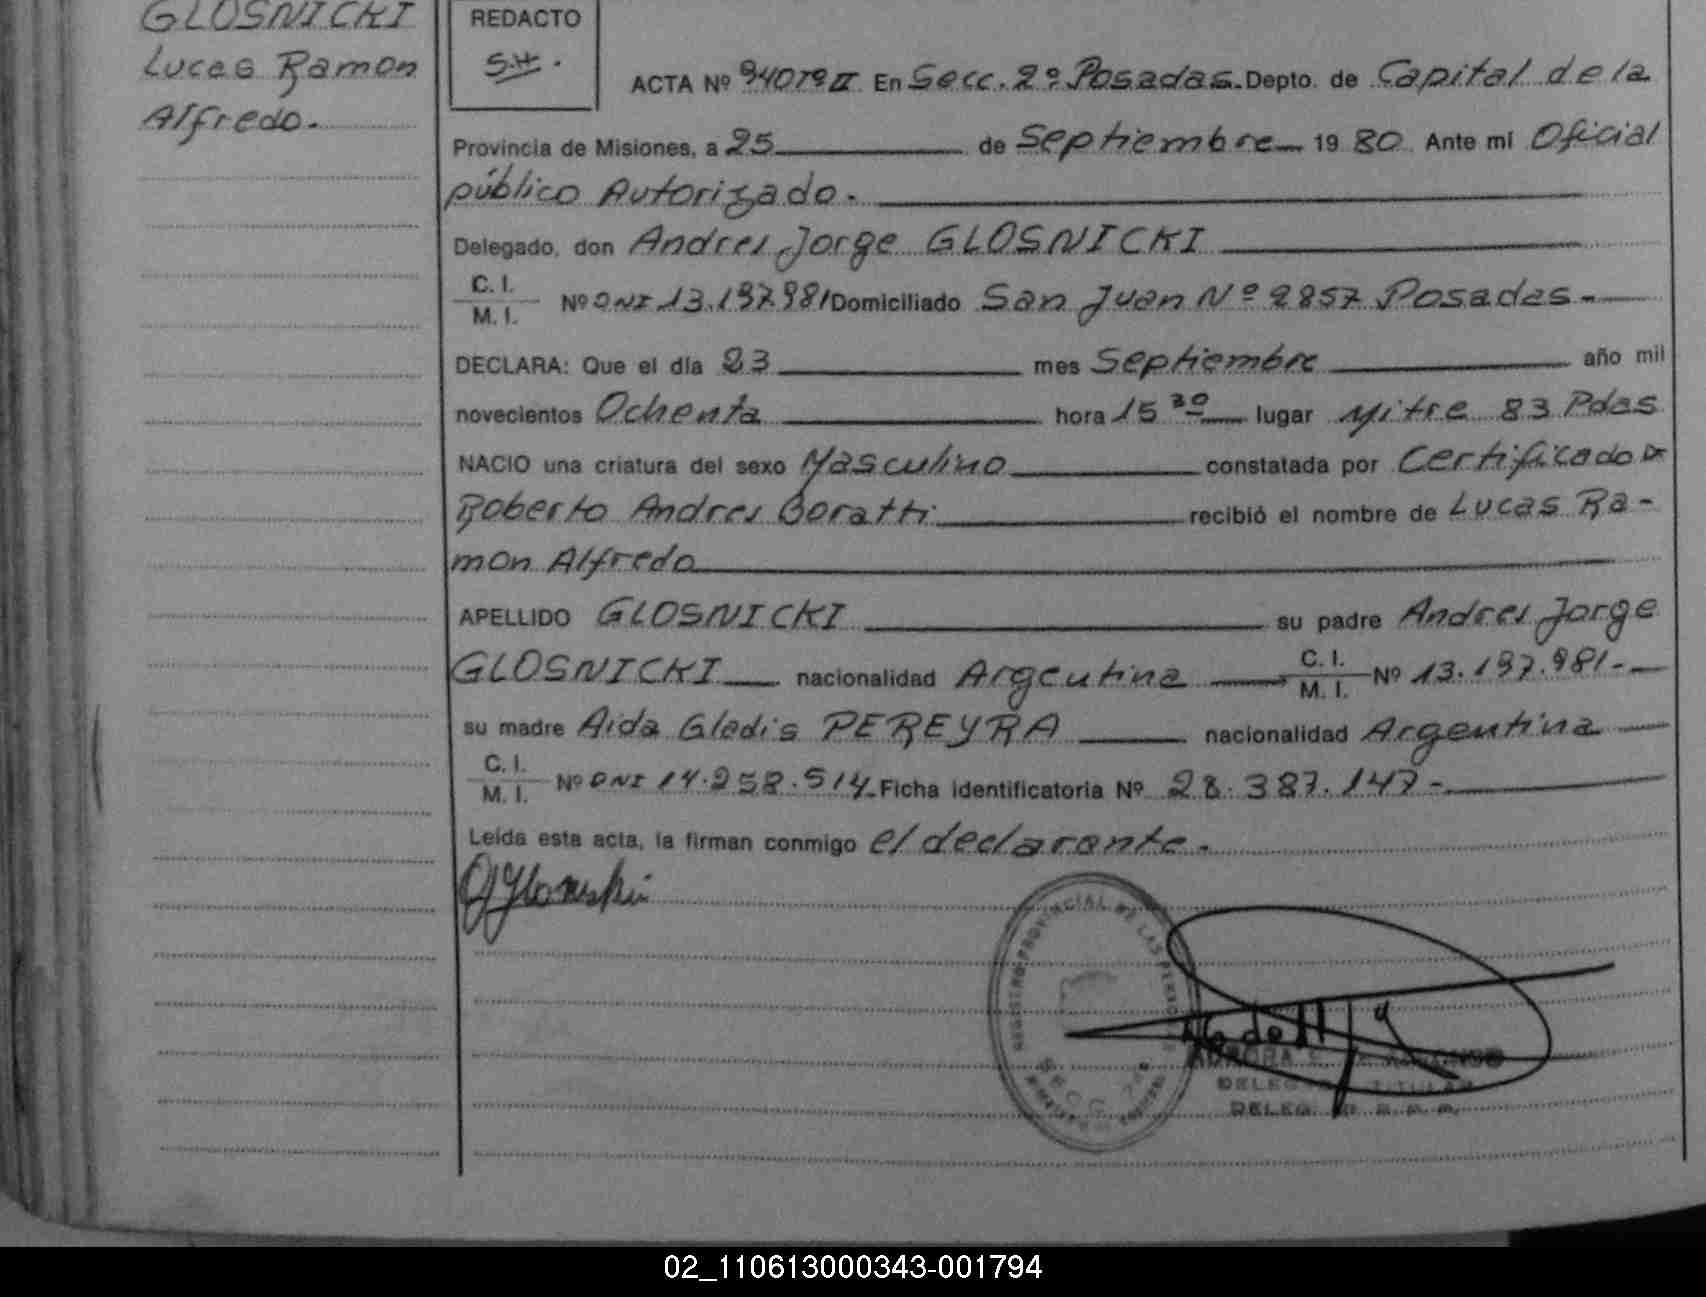 GLOSNICKI
Lucas Ramon
Alfredo.
REDACTO
S.H.
ACTA Nº 9407º II En Secc. 2º Posadas. Depto. de Capital de la
Provincia de Misiones, a 25 de Septiembre 19 80 Ante mi Oficial
público Autorizado.
Delegado, don Andres Jorge GLOSNICKI
C. I.
M. I. Nº DNI 13.197.981 Domiciliado San Juan Nº 2857 Posadas-
DECLARA: Que el día 23 mes Septiembre año mil
novecientos Ochenta hora 15 30 lugar Mitre 83 Pdas
NACIO una criatura del sexo Masculino constatada por Certificado Dr
Roberto Andres Boratti recibió el nombre de Lucas Ra-
mon Alfredo
APELLIDO GLOSNICKI su padre Andres Jorge
GLOSNICKI nacionalidad Argentina C. I.
M. I. Nº 13.197.981.-
su madre Aida Gladis PEREYRA nacionalidad Argentina
C. I.
M. I. Nº DNI 14.258.514. Ficha identificatoria Nº 28.387.147-
Leída esta acta, la firman conmigo el declarante.
REGISTRO PROVINCIAL DE LAS PERSONAS
SECC. 2da
AURORA
DELEG TITULAR
DELEG.
02_110613000343-001794